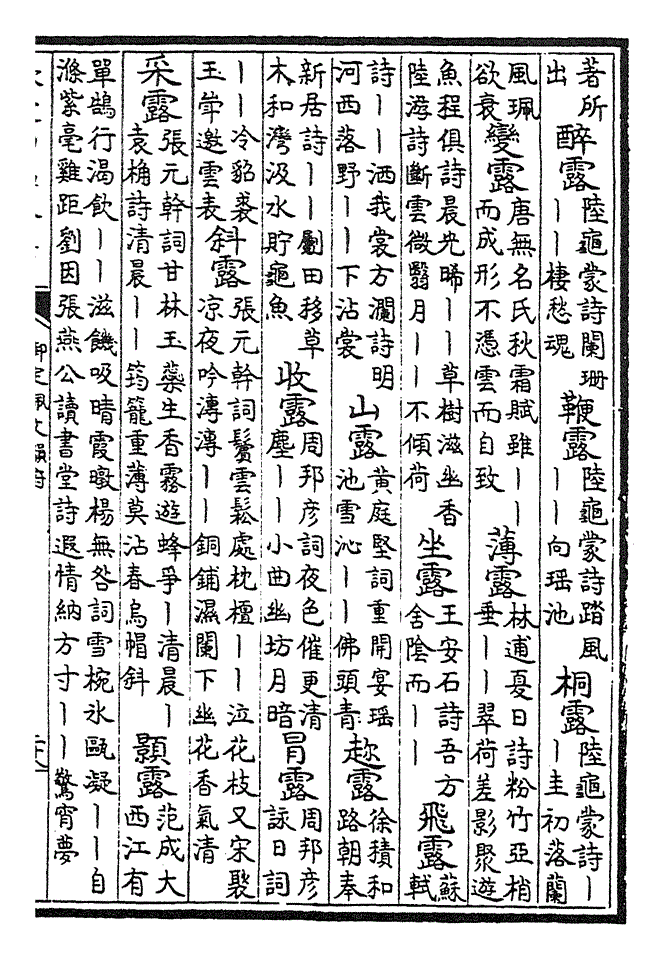 著所出 醉露 陸龜蒙詩闌珊丨丨棲愁魂 鞭露 陸龜蒙詩踏風丨丨向瑶池 桐露 陸龜蒙詩丨丨圭初落蘭
風珮欲衰 變露 唐無名氏秋霜賦雖丨丨而成形不憑雲而自致 薄露 林逋夏日詩粉竹亞梢垂丨丨翠荷差影聚遊
魚程俱詩晨光晞丨丨草樹滋幽香陸游詩斷雲微翳月丨丨不傾荷 坐露 王安石詩吾方舍陰而丨丨 飛露 蘇軾
詩丨丨洒我裳方瀾詩明河西落野丨丨下沾裳 山露 黄庭堅詞重開宴瑶池雪沁丨丨佛頭青 趂露 徐積和路朝奉
新居詩丨丨劚田移草木和灣汲水貯龜魚 收露 周邦彦詞夜色催更清塵丨丨小曲幽坊月暗 冐露 周邦彦詠日詞
丨丨冷貂裘玉峕邀雲表 斜露 張元幹詞鬢雲鬆處枕檀丨丨泣花枝又宋褧凉夜吟漙漙丨丨銅鋪濕闌下幽花香氣清
采露 張元幹詞甘林玉蘂生香霧遊蜂爭丨清晨丨袁桷詩清晨丨丨筠籠重薄莫沾春烏帽斜 顥露 范成大西江有
單鵠行渴飲丨丨滋饑吸晴霞暾楊無咎詞雪椀氷甌凝丨丨自滌紫毫雞距劉因張燕公讀書堂詩遐情納方寸丨丨驚宵夢
御定佩文韻府